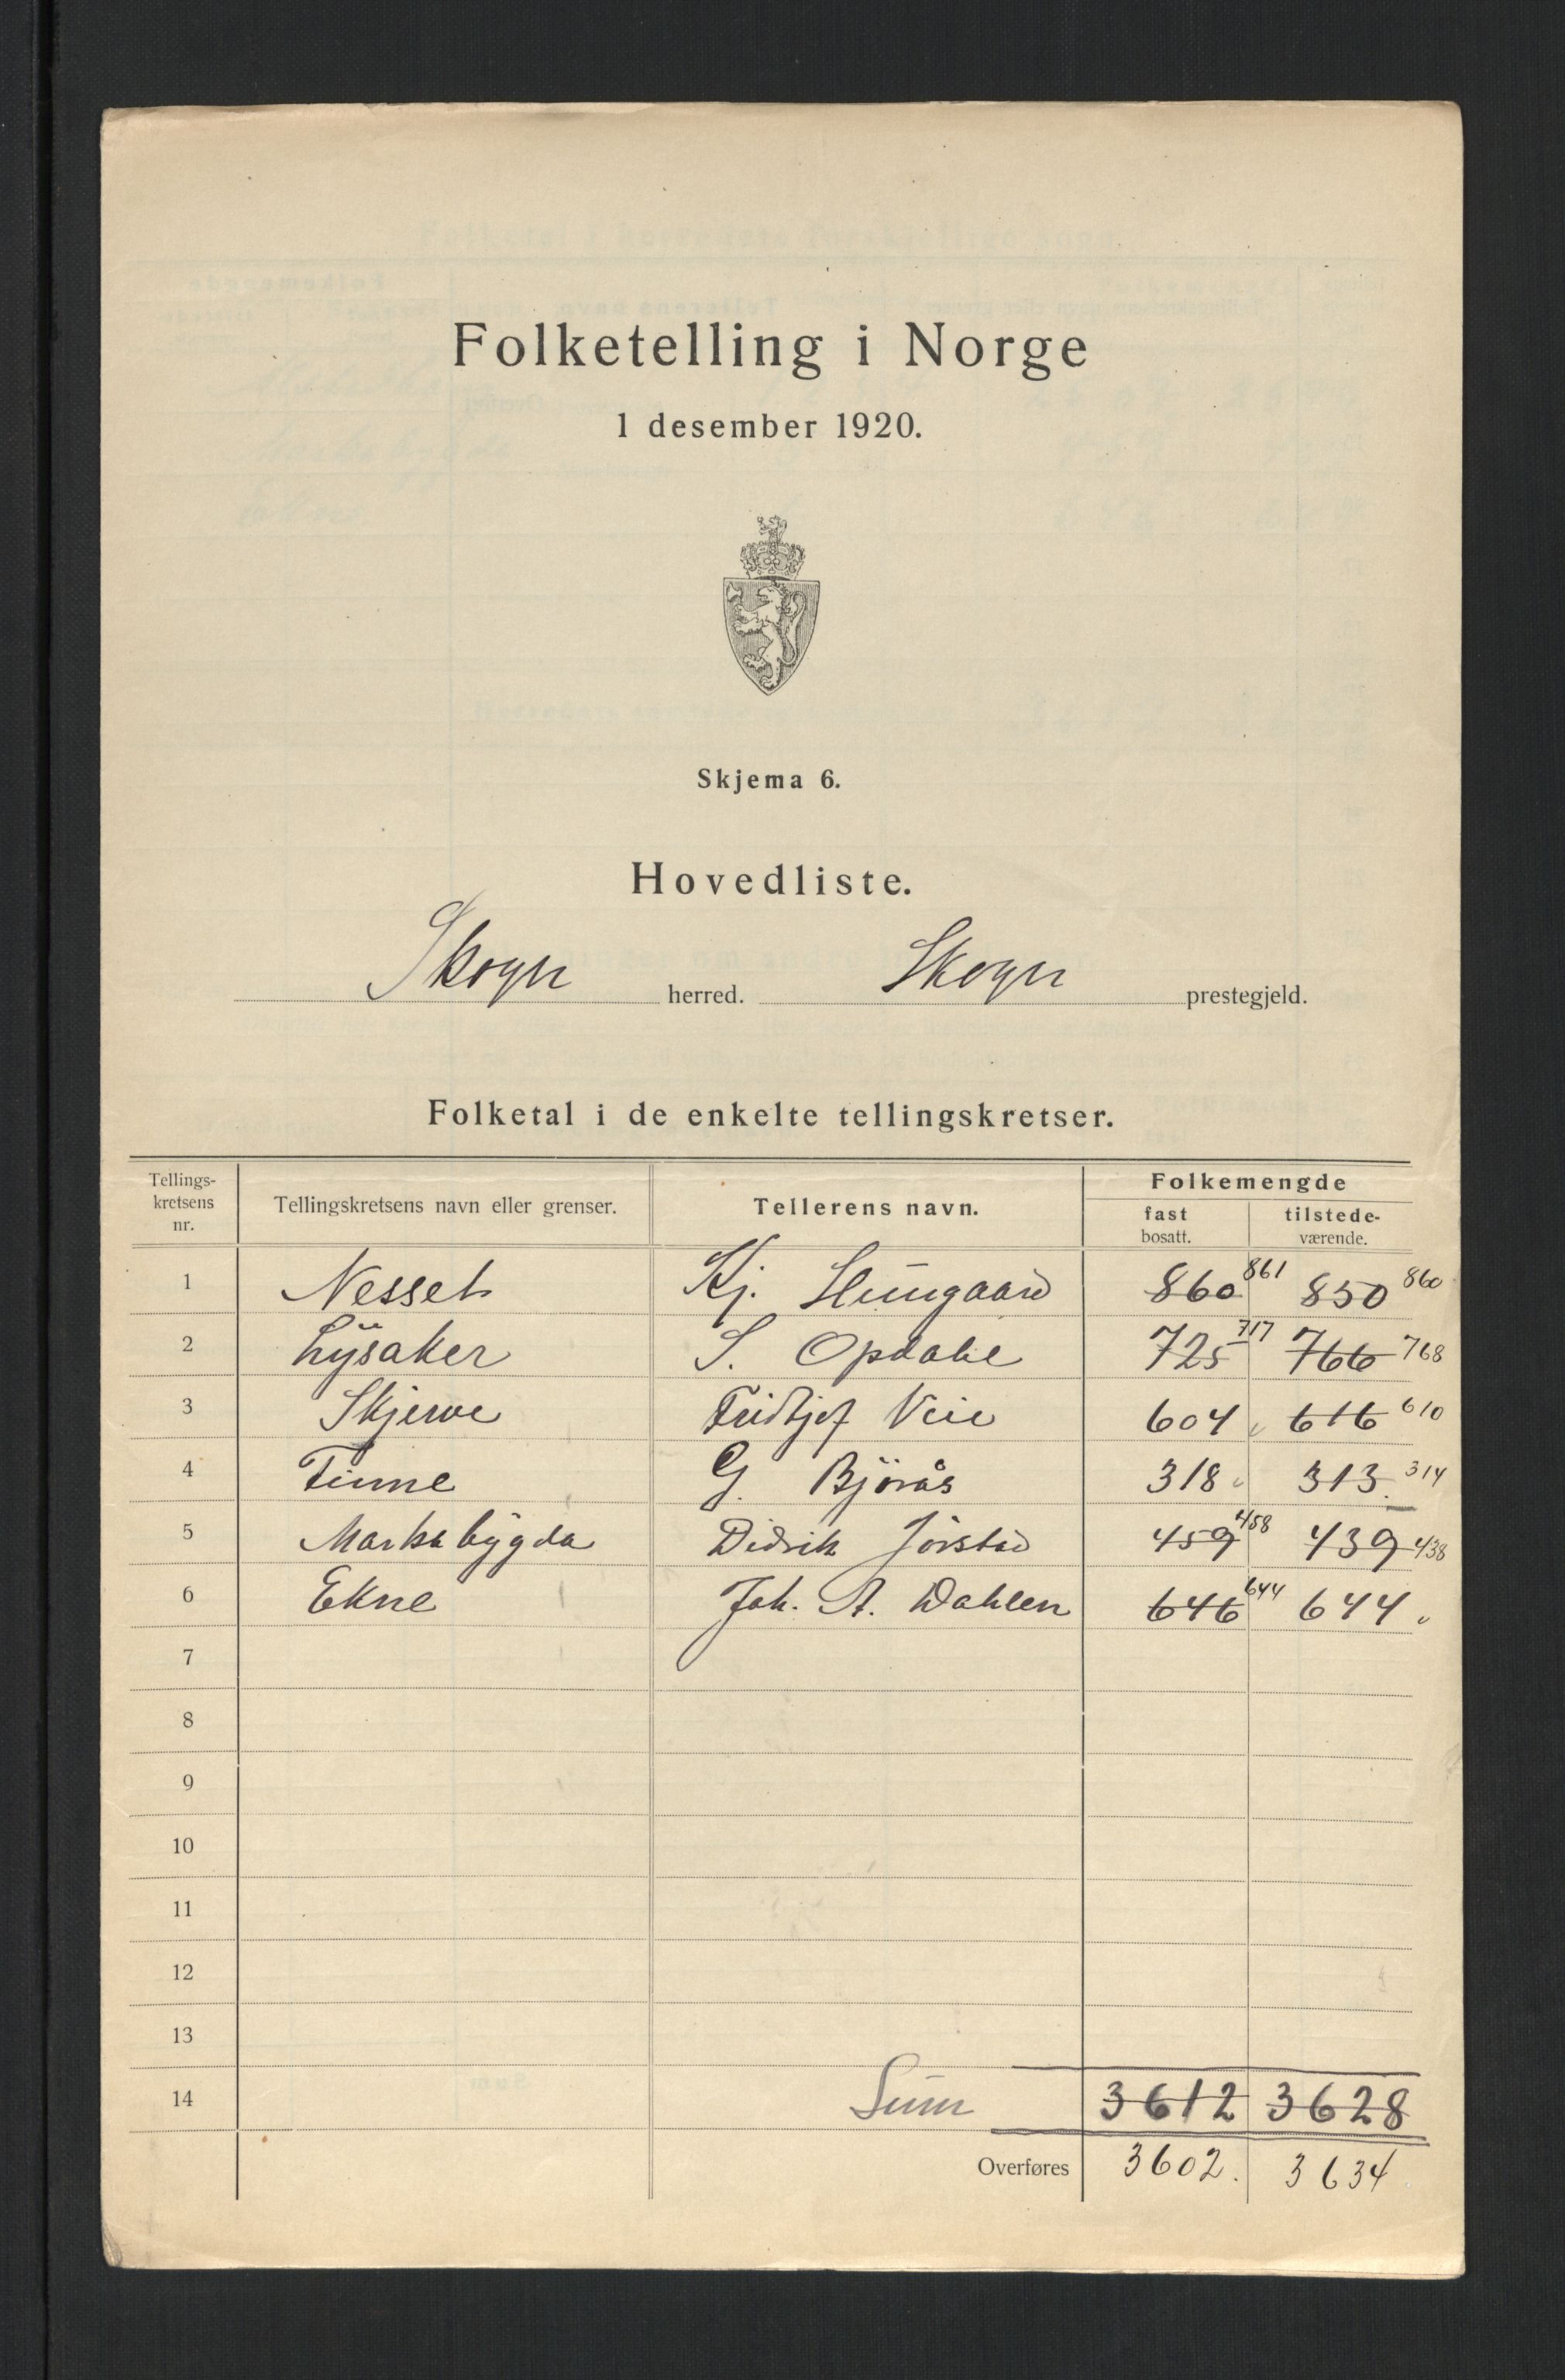 Folketelling i Norge
1 desember 1920.
Skjema 6.
Hovedliste.
Skogn herred. Skogn prestegjeld.
Folketal i de enkelte tellingskretser.
Tellings-kretsens nr. Tellingskretsens navn eller grenser. Tellerens navn. Folkemengde
fast bosatt. tilstede-værende.
1 Nesset Kj. 860 861 850 860
2 Lysaker S. Opdahl 725 717 766 768
3 Skjerve Fridtjof Veie 604 616 610
4 Tinne G. Bjørås 318 313 314
5 Markabygda Didrik Jørstad 459 458 439 438
6 Ekne Joh. A. Dahlen 646 644 644
7
8
9
10
11
12
13
14 Sum 3612 3628
Overføres 3602. 3634